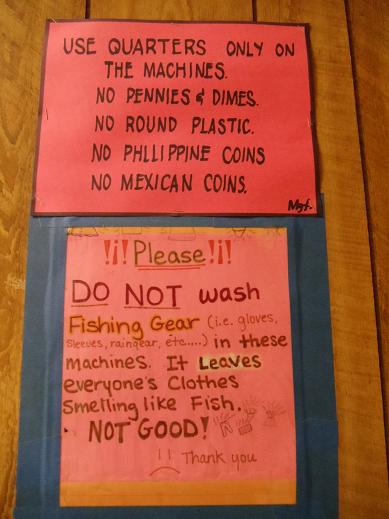 USE QUARTERS ONLY ON
THE MACHINES.
NO PENNIES & DIMES.
NO ROUND PLASTIC.
NO PHLLIPPINE COINS
NO MEXICAN COINS.
Mgt.
!¡! Please !¡!
DO NOT wash
Fishing Gear (i.e. gloves,
Sleeves, raingear, etc.....) in these
machines. It Leaves
everyone's Clothes
Smelling like Fish.
NOT GOOD!
Thank you